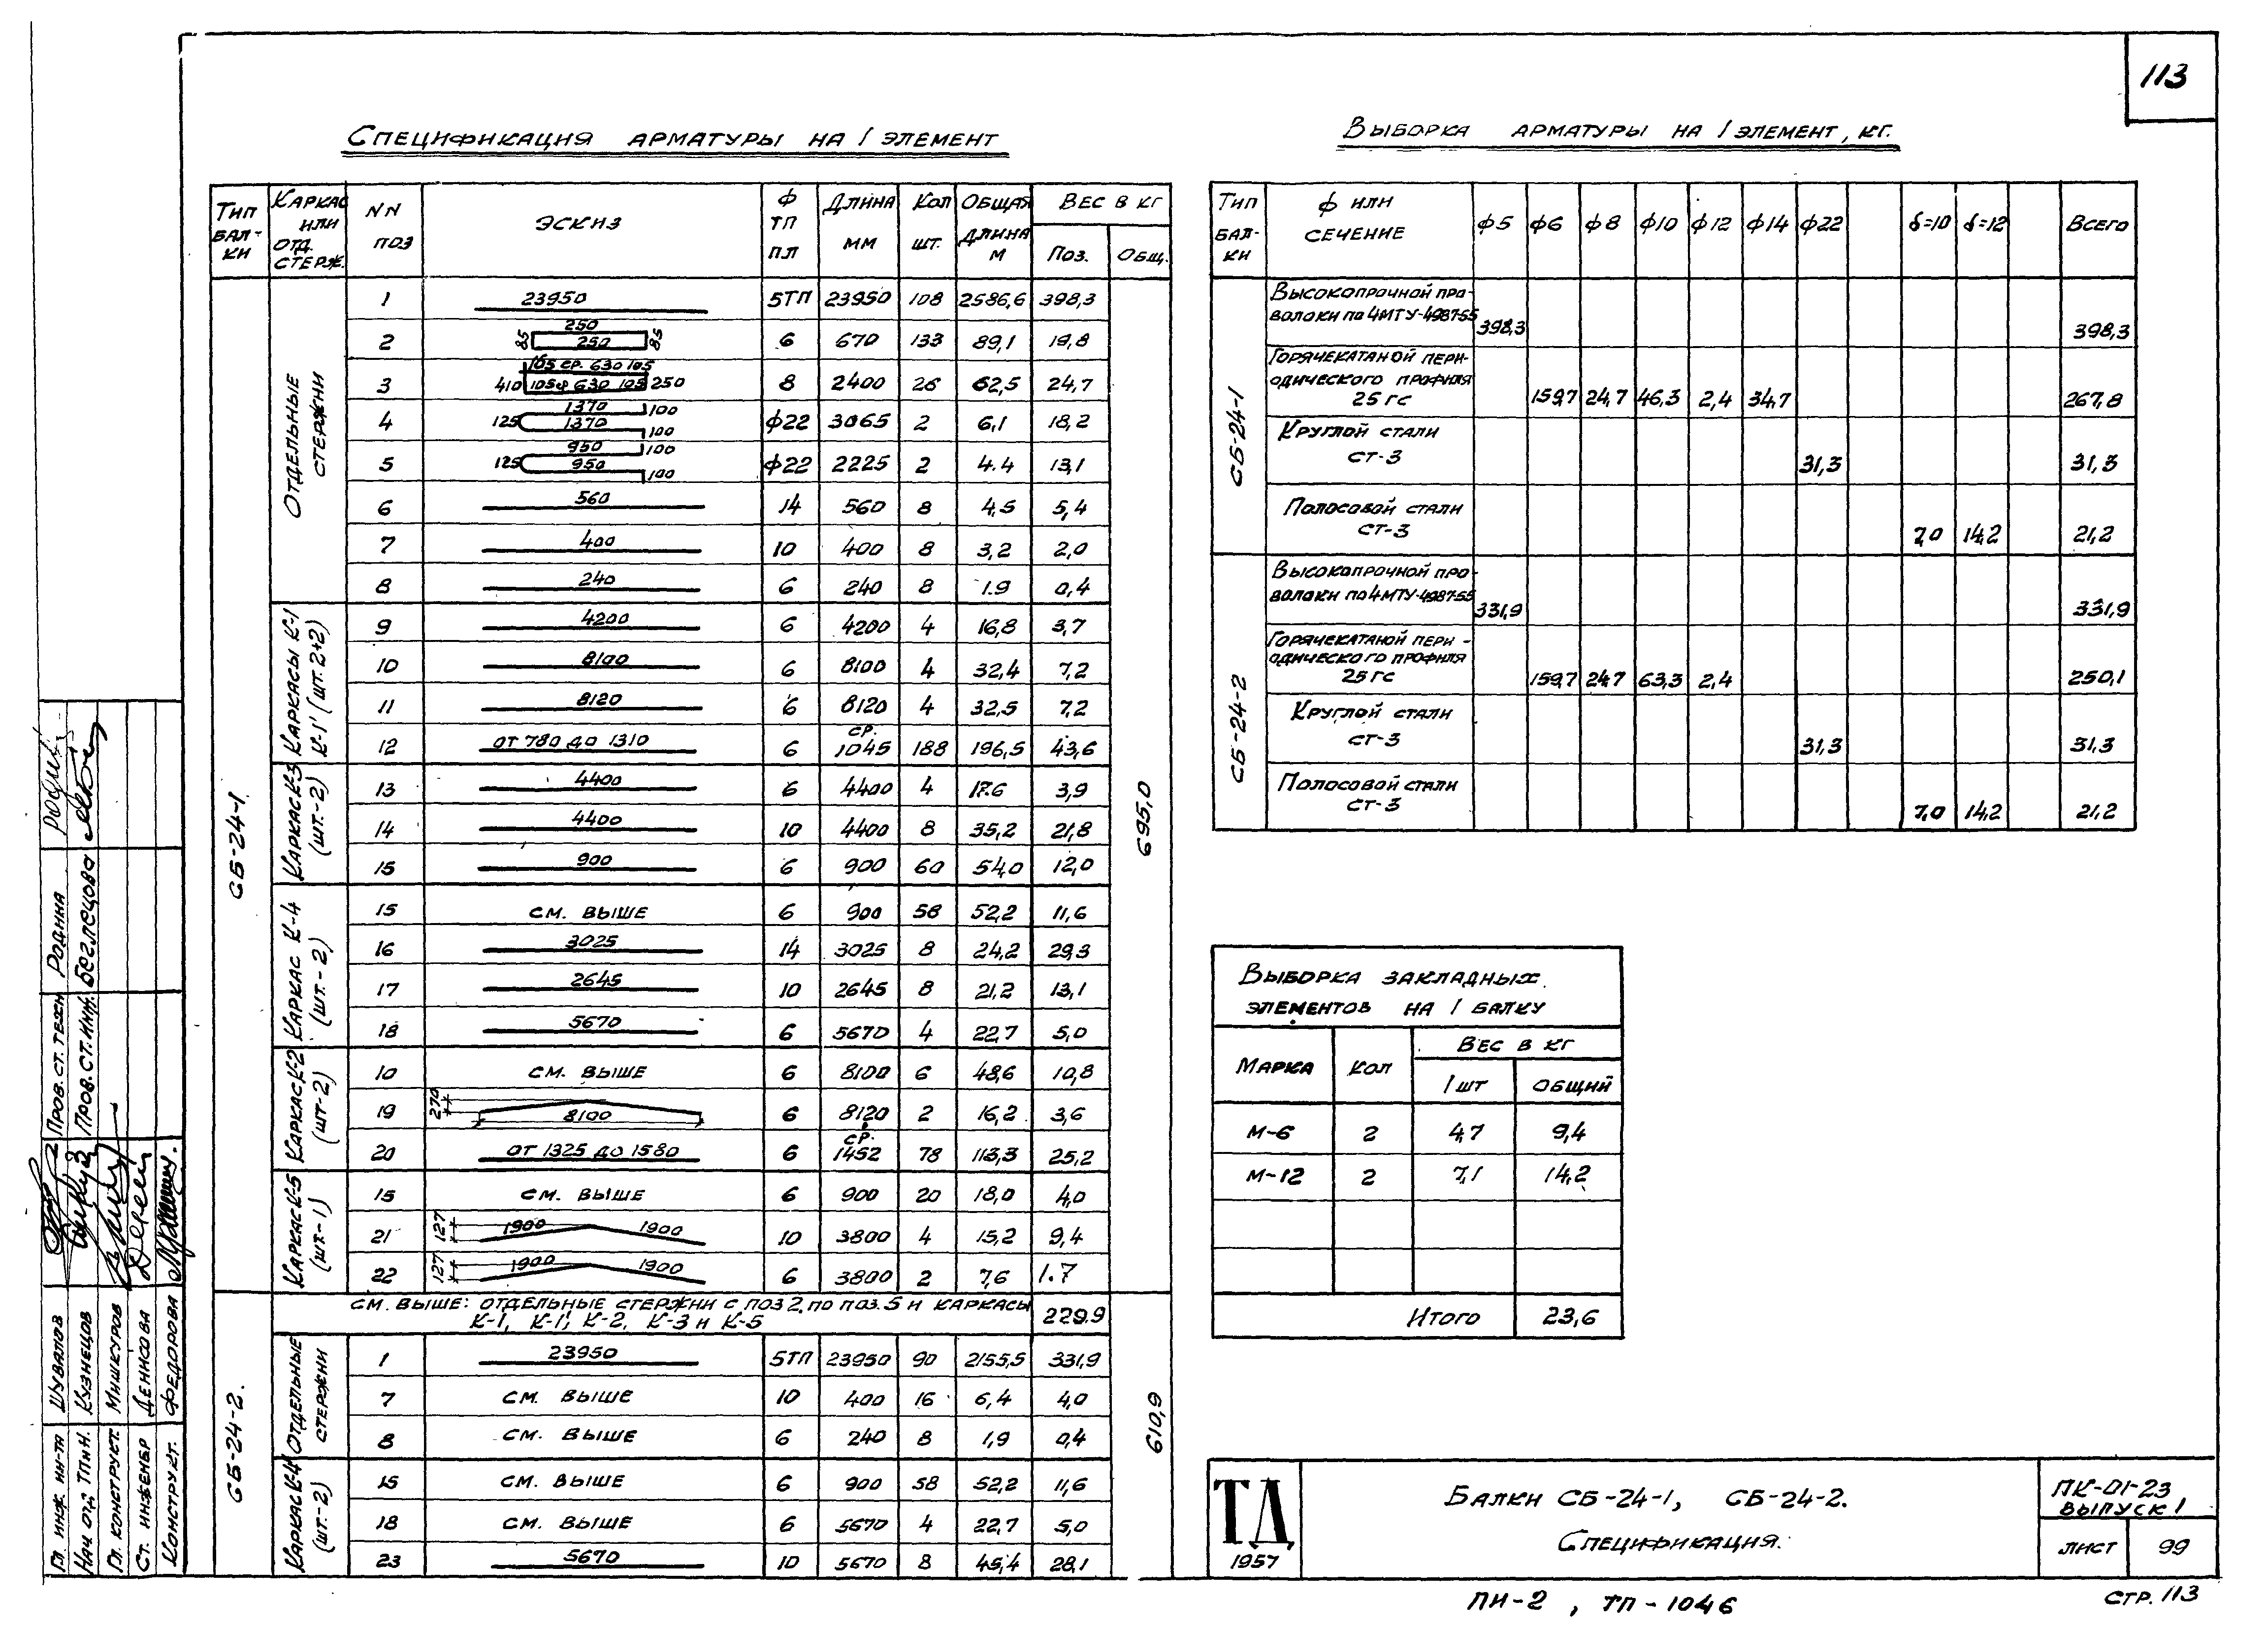 113
Спецификация арматуры на 1 элемент
Тип балки | Каркас или отд. стерж. | NN поз | Эскиз | ф тп пл | Длина мм | Кол шт. | Общая длина м | Вес в кг Поз. | Общ.
СБ-24-1. 695,0
Отдельные стержни
1 23950 5ТП 23950 108 2586,6 398,3
2 85 250 250 85 6 670 133 89,1 19,8
3 410 105 ср. 630 105 105 ср 630 105 250 8 2400 26 62,5 24,7
4 125 1370 1370 100 100 ф22 3065 2 6,1 18,2
5 125 950 950 100 100 ф22 2225 2 4.4 13,1
6 560 14 560 8 4,5 5,4
7 400 10 400 8 3,2 2,0
8 240 6 240 8 1.9 0,4
Каркасы К-1 К-1' (шт. 2+2)
9 4200 6 4200 4 16,8 3,7
10 8100 6 8100 4 32,4 7,2
11 8120 6 8120 4 32,5 7,2
12 от 780 до 1310 6 ср. 1045 188 196,5 43,6
Каркас К-3 (шт.-2)
13 4400 6 4400 4 17.6 3,9
14 4400 10 4400 8 35,2 21,8
15 900 6 900 60 54,0 12,0
Каркас К-4 (шт.-2)
15 см. выше 6 900 58 52,2 11,6
16 3025 14 3025 8 24,2 29,3
17 2645 10 2645 8 21,2 13,1
18 5670 6 5670 4 22,7 5,0
Каркас К-2 (шт-2)
10 см. выше 6 8100 6 48,6 10,8
19 270 8100 6 8120 2 16,2 3,6
20 от 1325 до 1580 6 ср. 1452 78 113,3 25,2
Каркас К-5 (шт.-1)
15 см. выше 6 900 20 18,0 4,0
21 127 1900 1900 10 3800 4 15,2 9,4
22 127 1900 1900 6 3800 2 7,6 1.7
СБ-24-2. 610,9
см. выше: отдельные стержни с поз 2 по поз. 5 и каркасы
К-1, К-1', К-2, К-3 и К-5 229.9
Отдельные стержни
1 23950 5ТП 23950 90 2155,5 331,9
7 см. выше 10 400 16 6,4 4,0
8 см. выше 6 240 8 1,9 0,4
Каркас К-4 (шт.-2)
15 см. выше 6 900 58 52,2 11,6
18 см. выше 6 5670 4 22,7 5,0
23 5670 10 5670 8 45,4 28,1
Выборка арматуры на 1 элемент, кг.
Тип балки | ф или сечение | ф5 | ф6 | ф8 | ф10 | ф12 | ф14 | ф22 | δ=10 | δ=12 | Всего
СБ-24-1
Высокопрочной про-
волоки по 4МТУ-4987-55 398,3 398,3
Горячекатаной пери-
одического профиля
25 гс 159,7 24,7 46,3 2,4 34,7 267,8
Круглой стали
ст-3 31,3 31,3
Полосовой стали
ст-3 7,0 14,2 21,2
СБ-24-2
Высокопрочной про-
волоки по 4МТУ-4987-55 331,9 331,9
Горячекатаной пери-
одического профиля
25 гс 159,7 24,7 63,3 2,4 250,1
Круглой стали
ст-3 31,3 31,3
Полосовой стали
ст-3 7,0 14,2 21,2
Выборка закладных
элементов на 1 балку
Марка | Кол | Вес в кг 1 шт | общий
М-6 2 4,7 9,4
М-12 2 7,1 14,2
Итого 23,6
ТД
1957
Балки СБ-24-1, СБ-24-2.
Спецификация.
ПК-01-23
выпуск 1
лист 99
ПИ-2, ТП-1046
стр. 113
Гл. инж. ин-та Шувалов
Нач отд ТПиН. Кузнецов
Гл. конструкт. Мишкуров
Ст. инженер Денисова
Конструкт. Федорова
Пров. ст. техн Родина
Пров. ст. инж. Беглецова